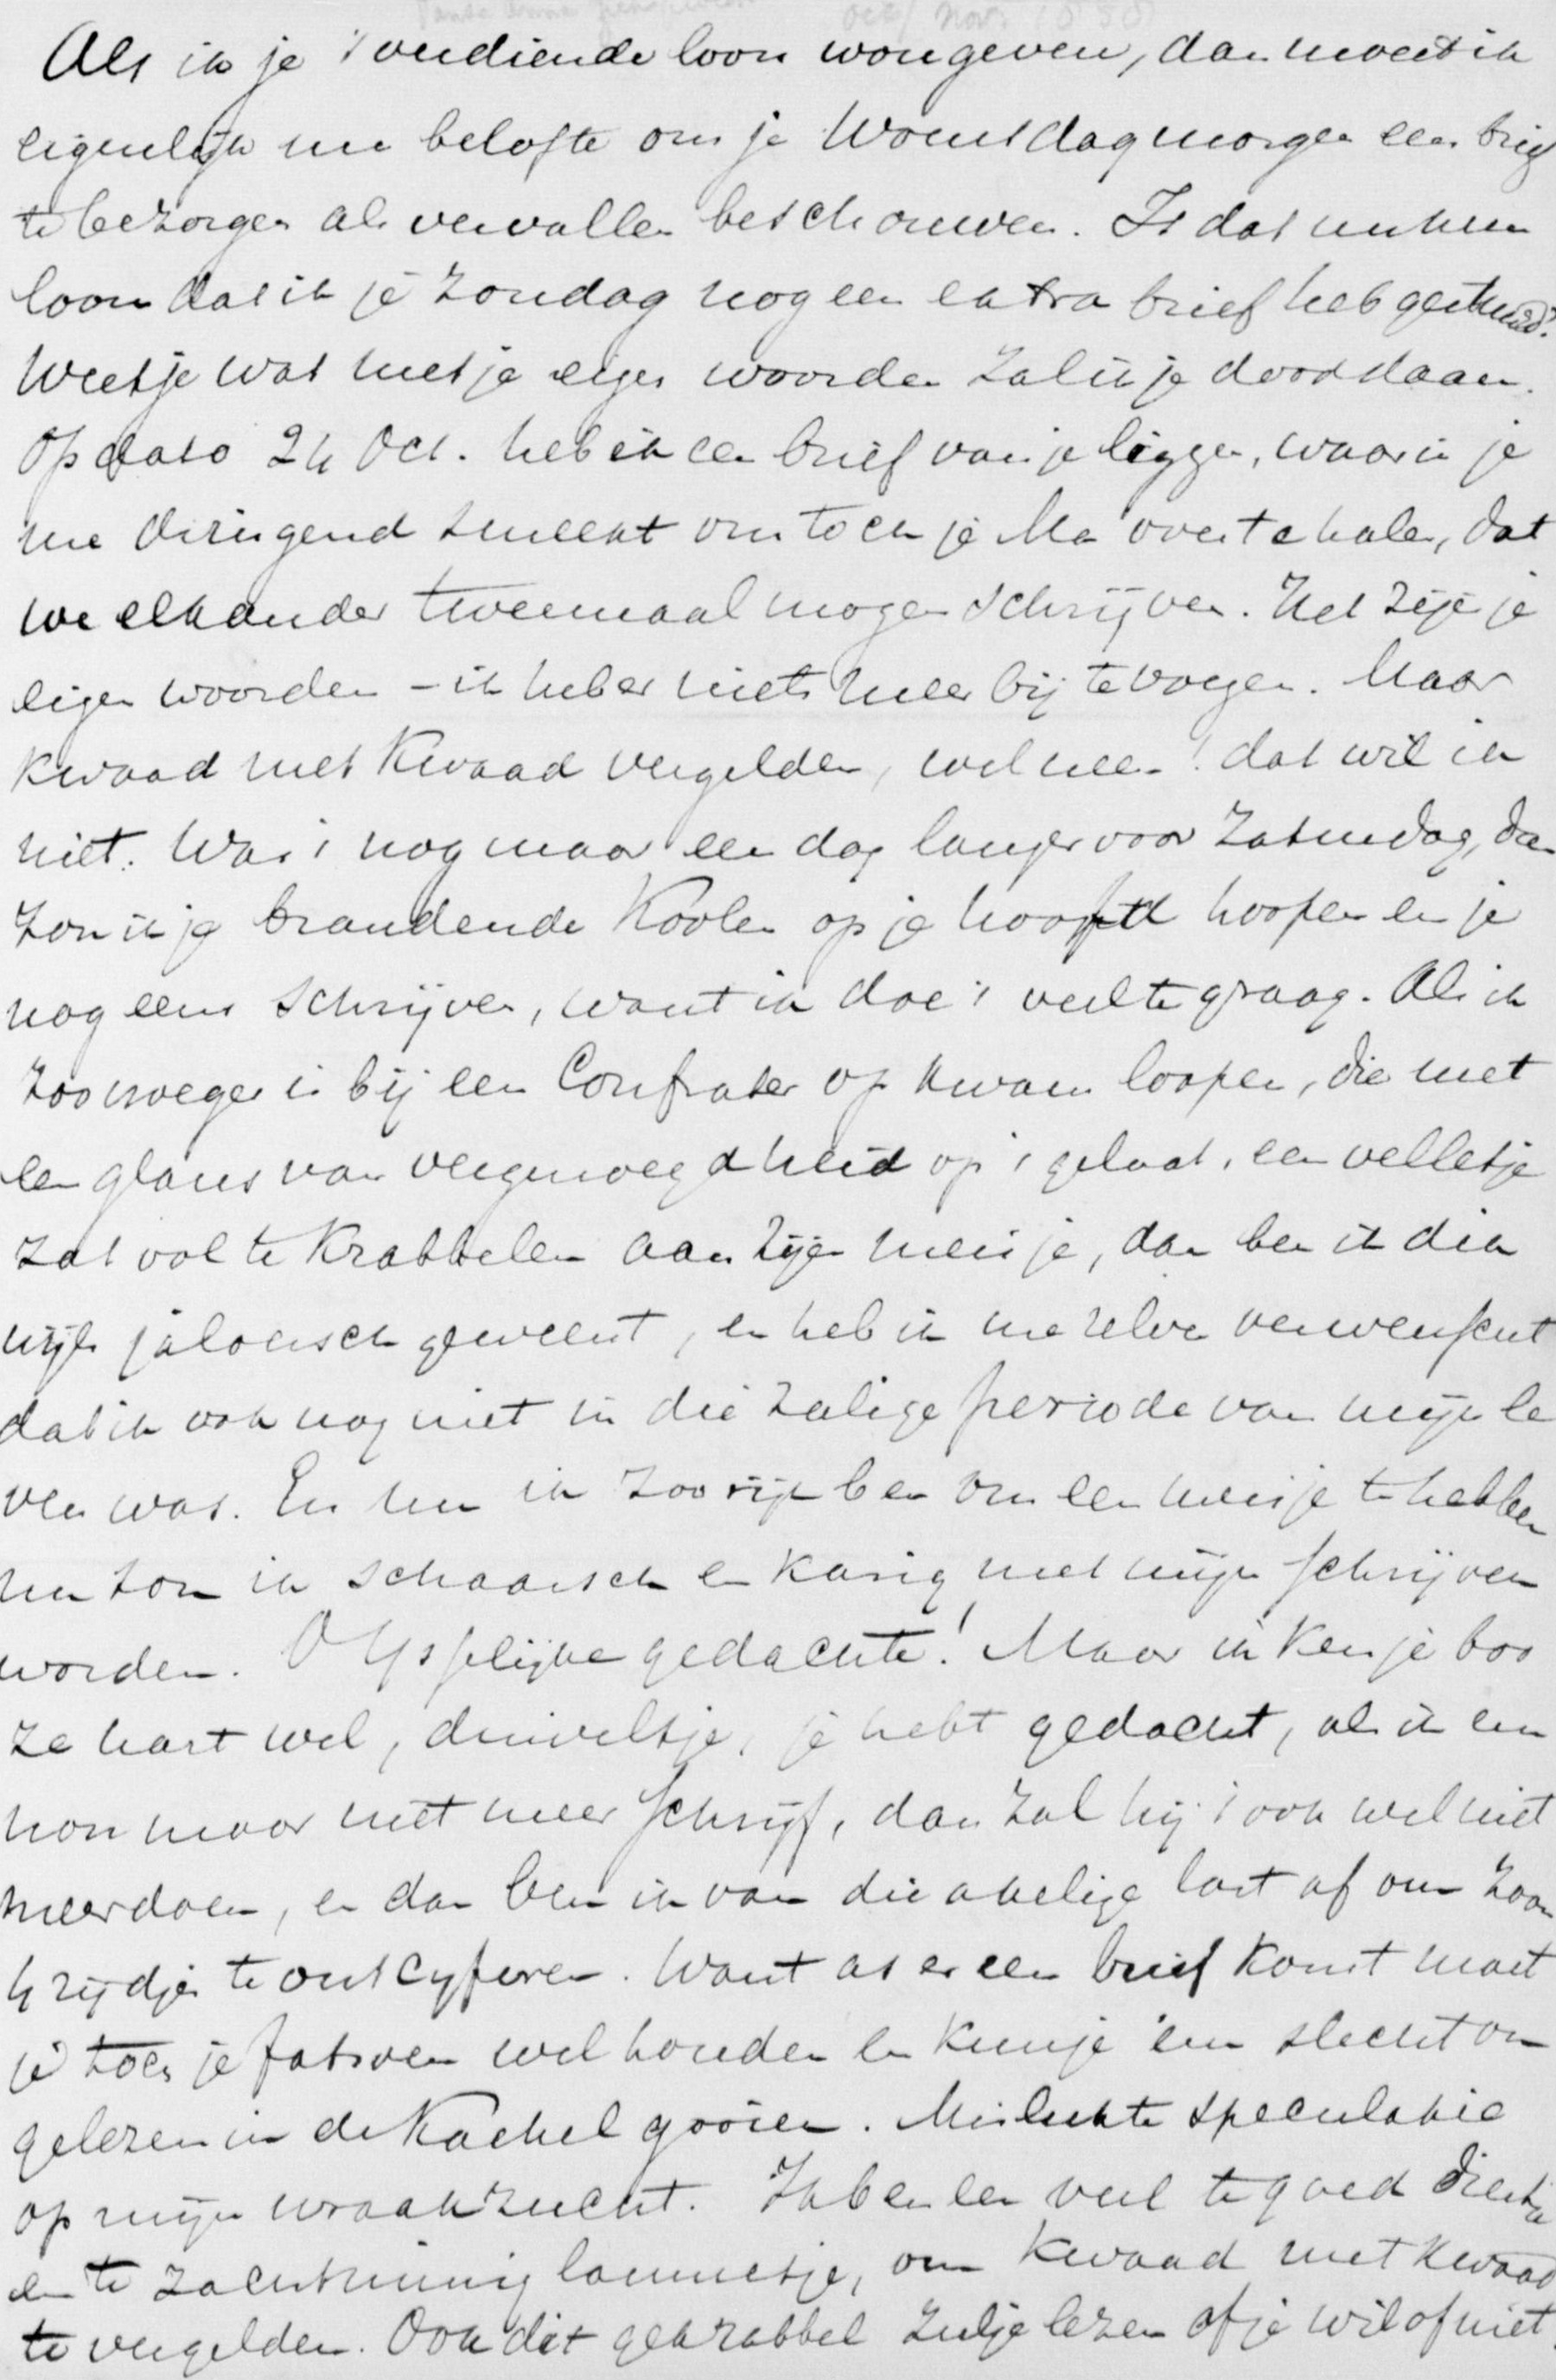 Als ik je 't verdiende loon wou geven, dan moest ik
eigenlijk me belofte om je Woensdagmorgen een brief
te bezorgen als vervallen beschouwen. Is dat nu me
loon dat ik je Zondag nog een extra brief heb gestuurd?
Weet je wat met je eigen woorden zal ik je doodslaan.
Op dato 24 Oct. heb ik een brief van je liggen, waarin je
me dringend smeekt om toch je Ma over te halen, dat
we elkander tweemaal mogen schrijven. Het zijn je
eigen woorden – ik heb er niets meer bij te voegen. Maar
kwaad met kwaad vergelden, wel neen! dat wil ik
niet. Was 't nog maar een dag langer voor Zaterdag, dan
zou ik je brandende Koolen op je hoofd hoopen en je
nog eens schrijven, want ik doe 't veel te graag. Als ik
zoo vroeger is bij een Confrater op kwam loopen, die met
een glans van vergenoegdheid op 't gelaat, een velletje
zat vol te Krabbelen aan zijn meisje, dan ben ik dik
wijls jaloersch geweest, en heb ik me zelve verwenscht
dat ik ook nog niet in die zalige periode van mijn le
ven was. En nu ik zoo rijk ben om een meisje te hebben
nu zou ik schaarsch en karig met mijn schrijven
worden. O IJsselijke gedachte! Maar ik ken je boo
ze hart wel, duiveltje, je hebt gedacht, als ik em
nou maar niet meer schrijf, dan zal hij 't ook wel niet
meer doen, en dan ben ik van die akelige last af om zoo'n
4 zijdjes te ontcyferen. Want as er een brief komt moet
je toch je fatsoen wel houden en kun je 'em slecht on
gelezen in de Kachel gooien. Mislukte speculatie
op mijn wraakzucht. Ik ben een veel te goed
en te zachtzinnig lammetje, om kwaad met kwaad
te vergelden. Ook dit gekrabbel zul je lezen of je wil of niet.